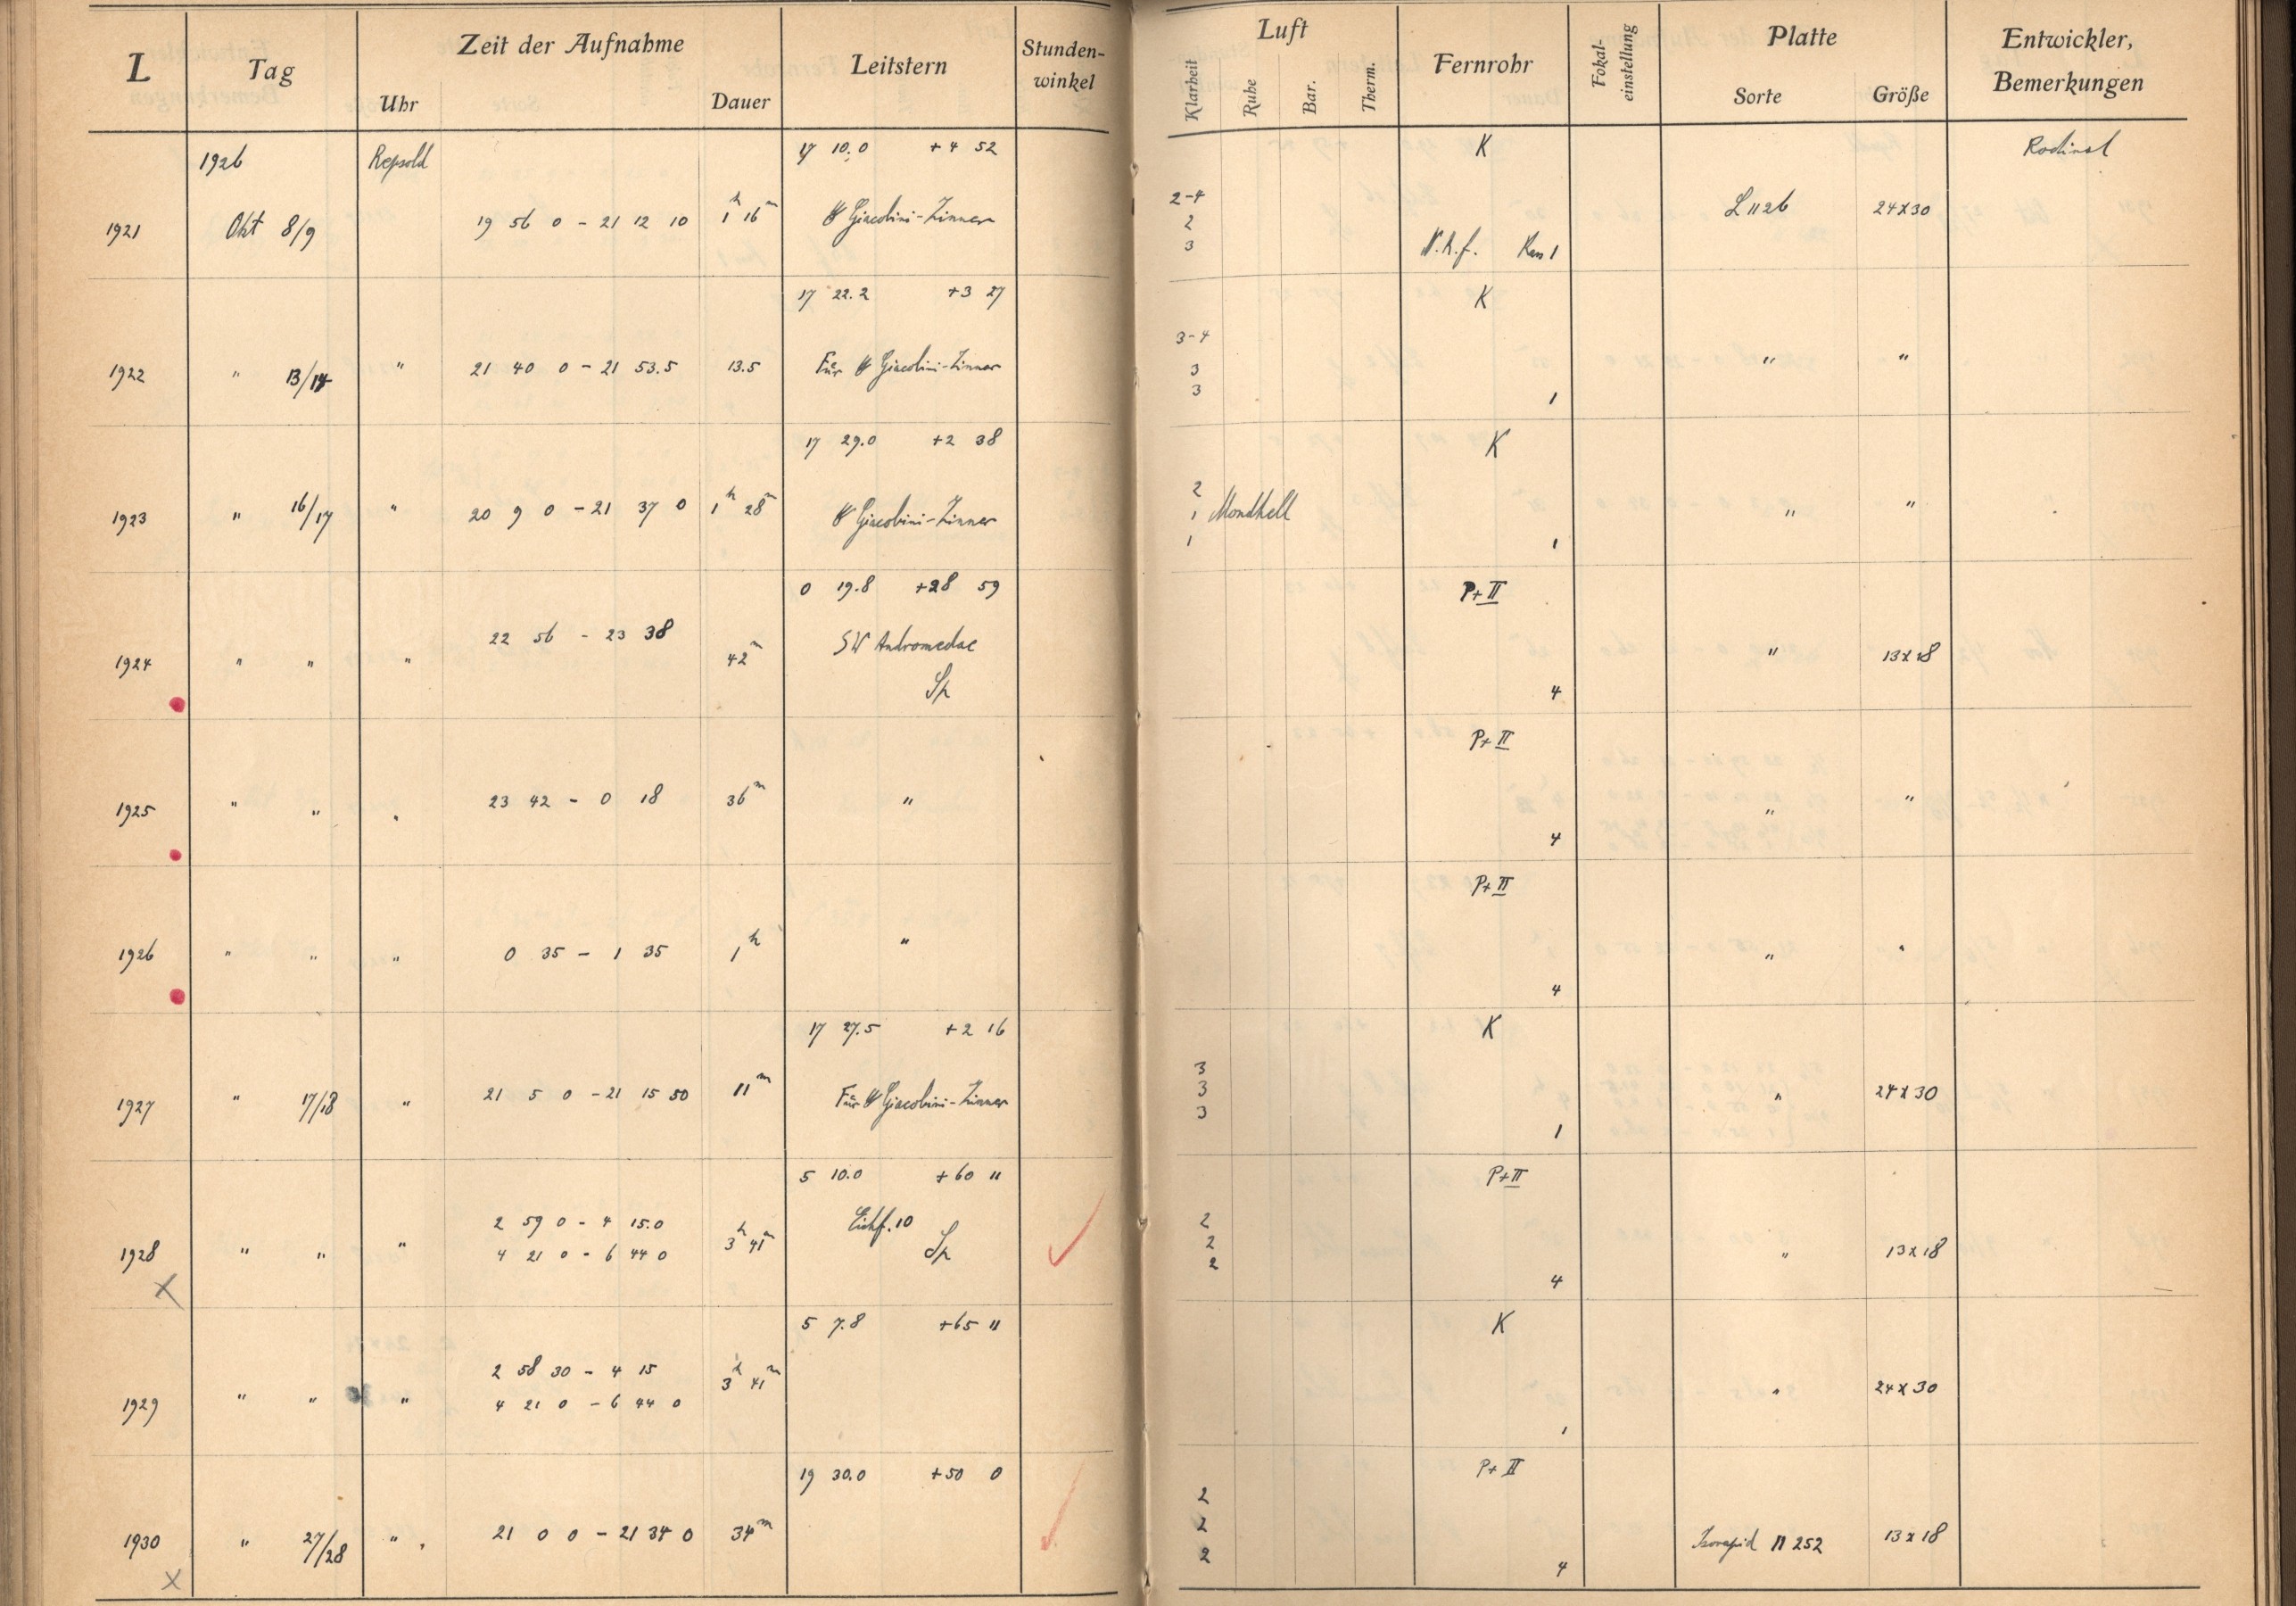 L Tag Zeit der Aufnahme Leitstern Stunden-winkel Luft Fernrohr Fokal-einstellung Platte Entwickler, Bemerkungen
Uhr Dauer Klarheit Ruhe Bar. Therm. Sorte Größe
1926 Repsold 17 10.0 +4 52 K Rodinal
2-4
1921 Okt 8/9 19 56 0 - 21 12 10 1h 16m Giacobini-Zinner 2 L 1126 24x30
3 N.A.f. Kas 1
17 22.2 +3 27 K
3-4
1922 " 13/14 " 21 40 0 - 21 53.5 13.5 Für Giacobini-Zinner 3 " "
3 1
17 29.0 +2 38 K
2
1923 " 16/17 " 20 9 0 - 21 37 0 1h 28m Giacobini-Zinner 1 Mondhell " "
1 1
0 19.8 +28 59 P+II
1924 " " " 22 56 - 23 38 42m SW Andromedae " 13x18
Sp 4
P+II
1925 " " " 23 42 - 0 18 36m " " "
4
P+II
1926 " " " 0 35 - 1 35 1h " " "
4
17 27.5 +2 16 K
3
1927 " 17/18 " 21 5 0 - 21 15 50 11m Für Giacobini-Zinner 3 " 24x30
3 1
5 10.0 +60 11 P+II
2 59 0 - 4 15.0 Eichf. 10 2
1928 " " " 4 21 0 - 6 44 0 3h 41m Sp 2 " 13x18
x 2 4
5 7.8 +65 11 K
2 58 30 - 4 15 3h 41m
1929 " " " 4 21 0 - 6 44 0 " 24x30
1
19 30.0 +50 0 P+II
2
1930 " 27/28 " 21 0 0 - 21 34 0 34m 2 Isorapid 11252 13x18
x 2 4